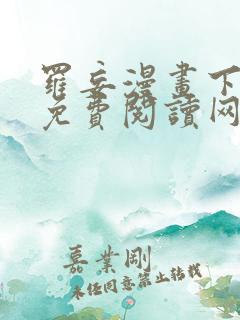 羅妄漫畫下
免費閱讀网
嘉業剛
未经同意禁止转载